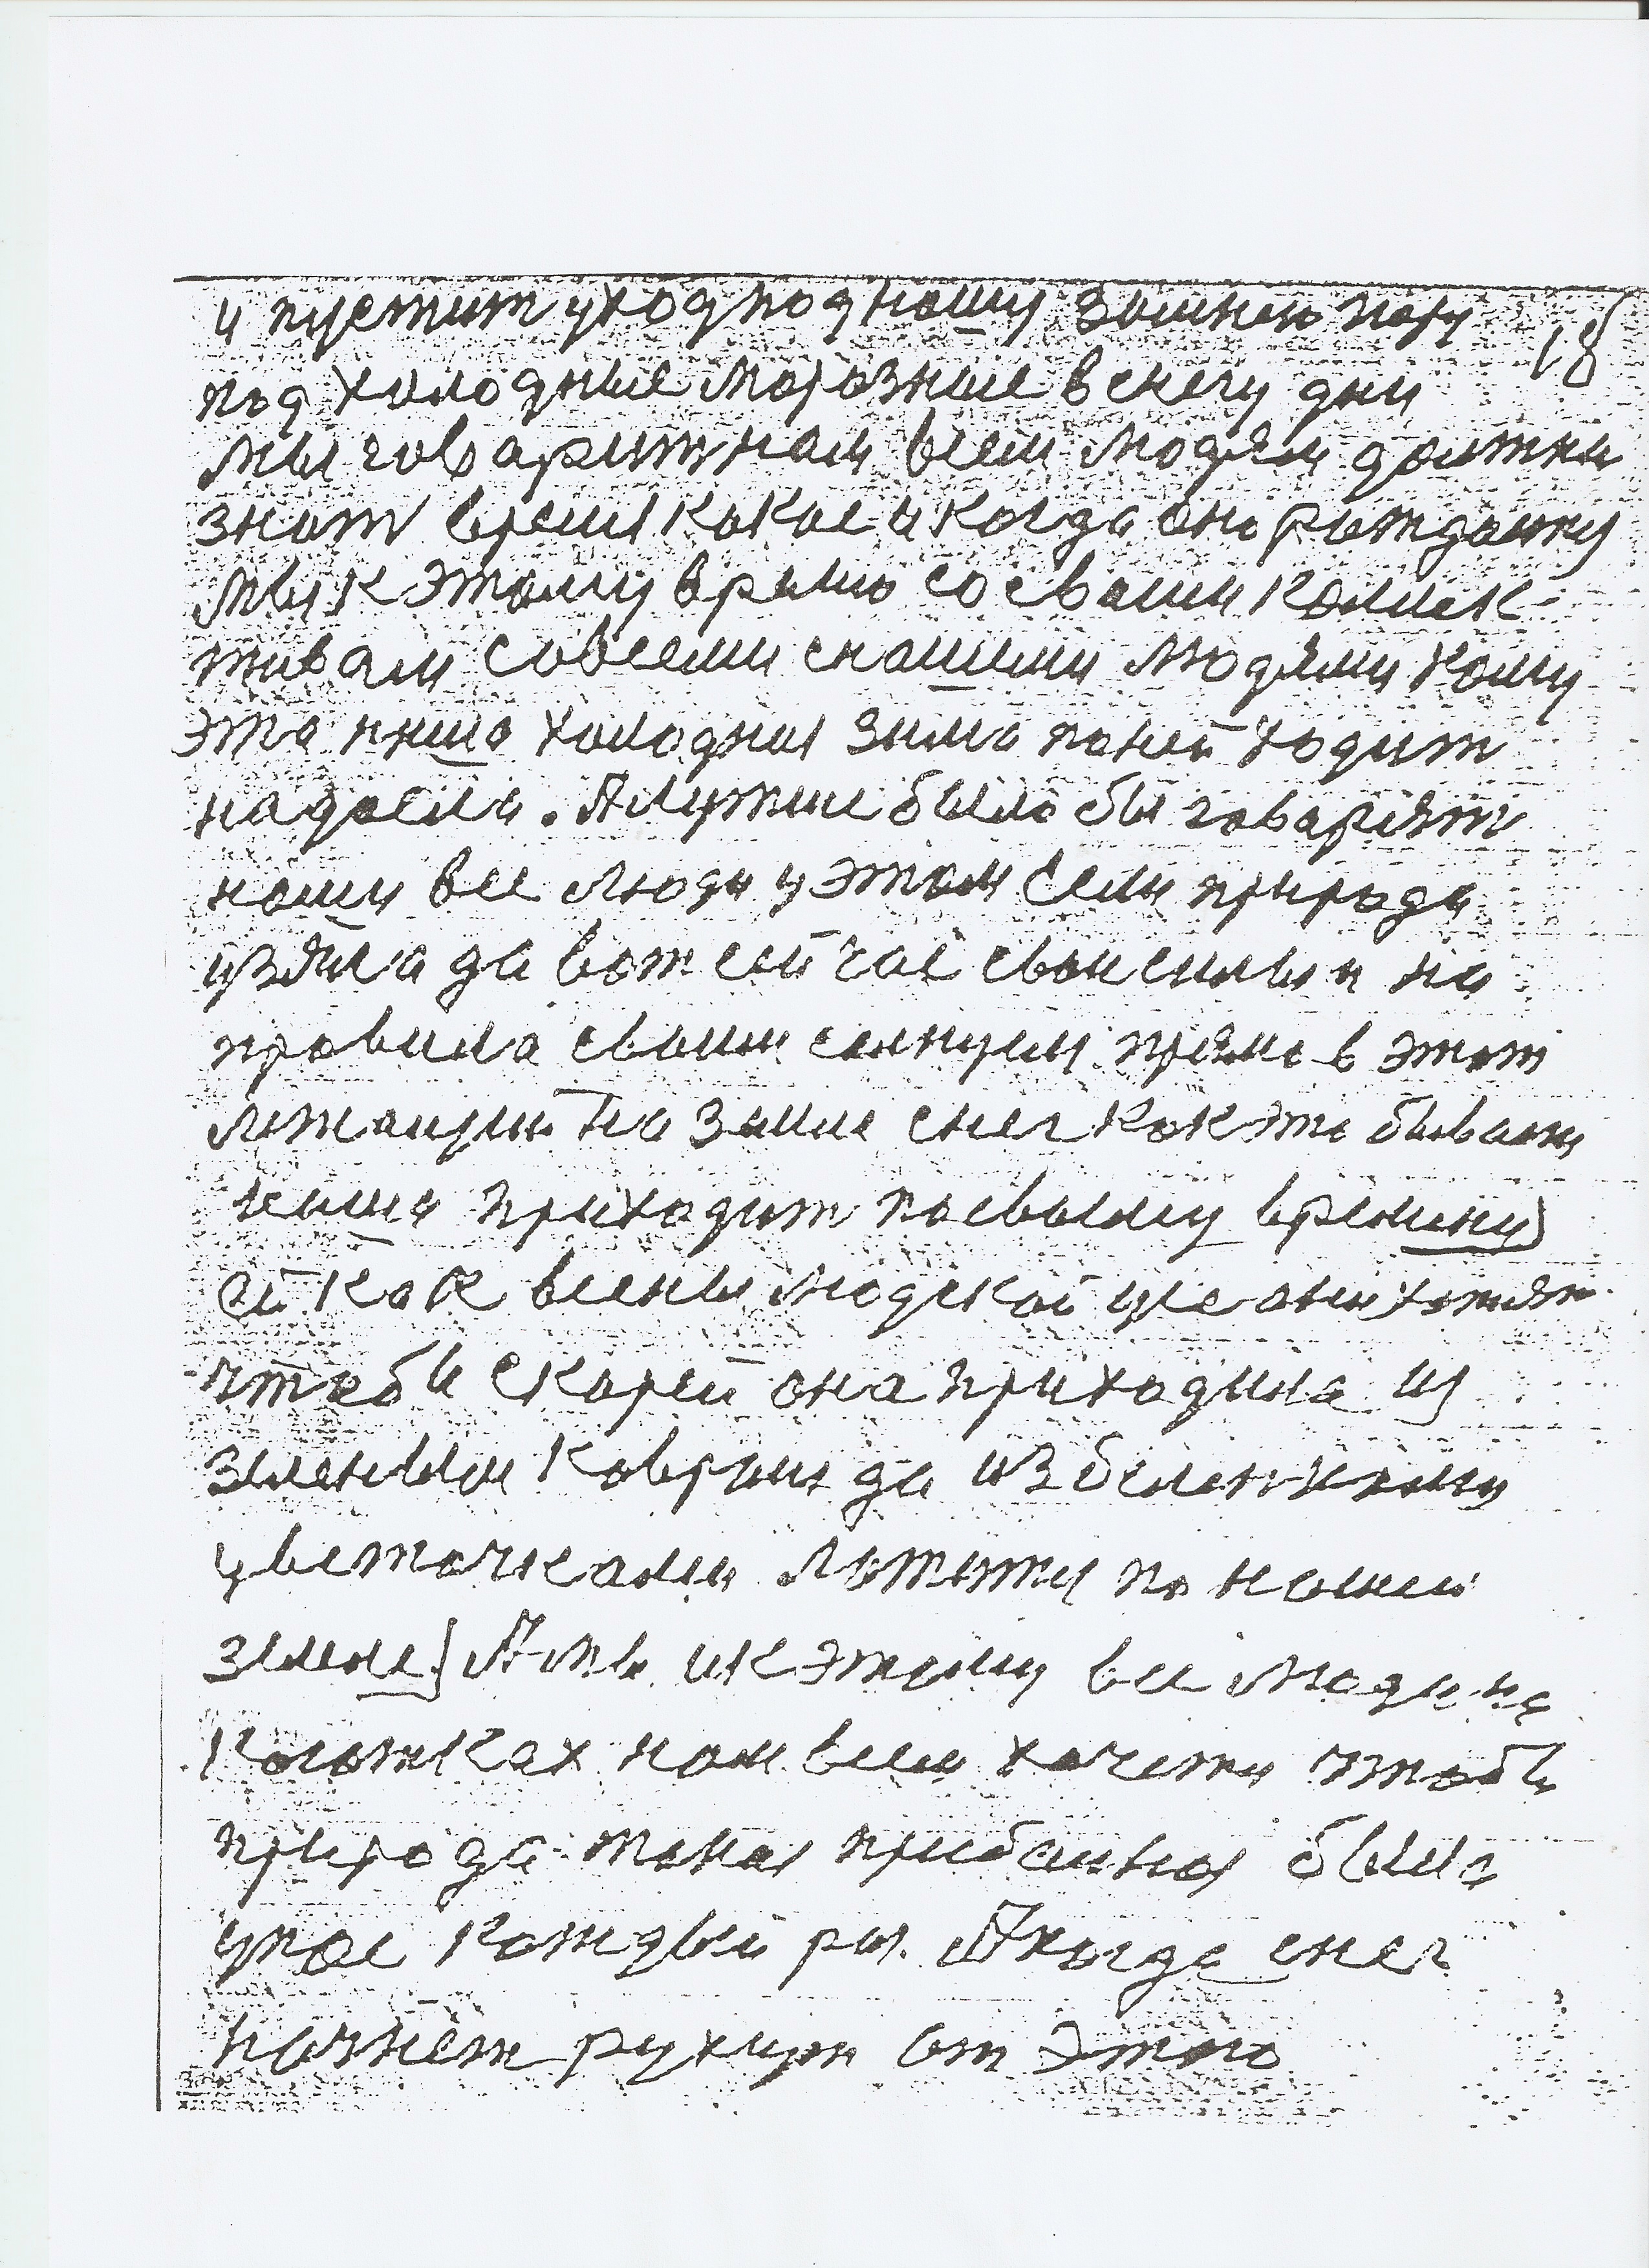 и пустит уход под нашу зимнею пору 18
под холодные морозные в снегу дни
мы говарит нам всем людям должны
знат время какое и когда оно рождаит
мы к этому врямю со своими коллек
тивам совсеми снашими людями кому
эта наша холодная зима по ней ходит
надоела. А лутше было бы говарят
наши все люди у этом если природа
узяла да вот сейчас свои силы и на
правила своим сонцум прямо в этот
лежащий на земле снег как это бываит
наша приходит посвоему времину)
ей как весны людской усе они хотят
чтобы скарей она приходила из
зиленым ковром да из беленкими
цветочками лютти по нашей
земле] А мы и к этому все люди на
коготках нам всем хочетца чтобы
природа такая прибаиная была
у нас каждый раз. А когда снег
начнет рухнут от этого